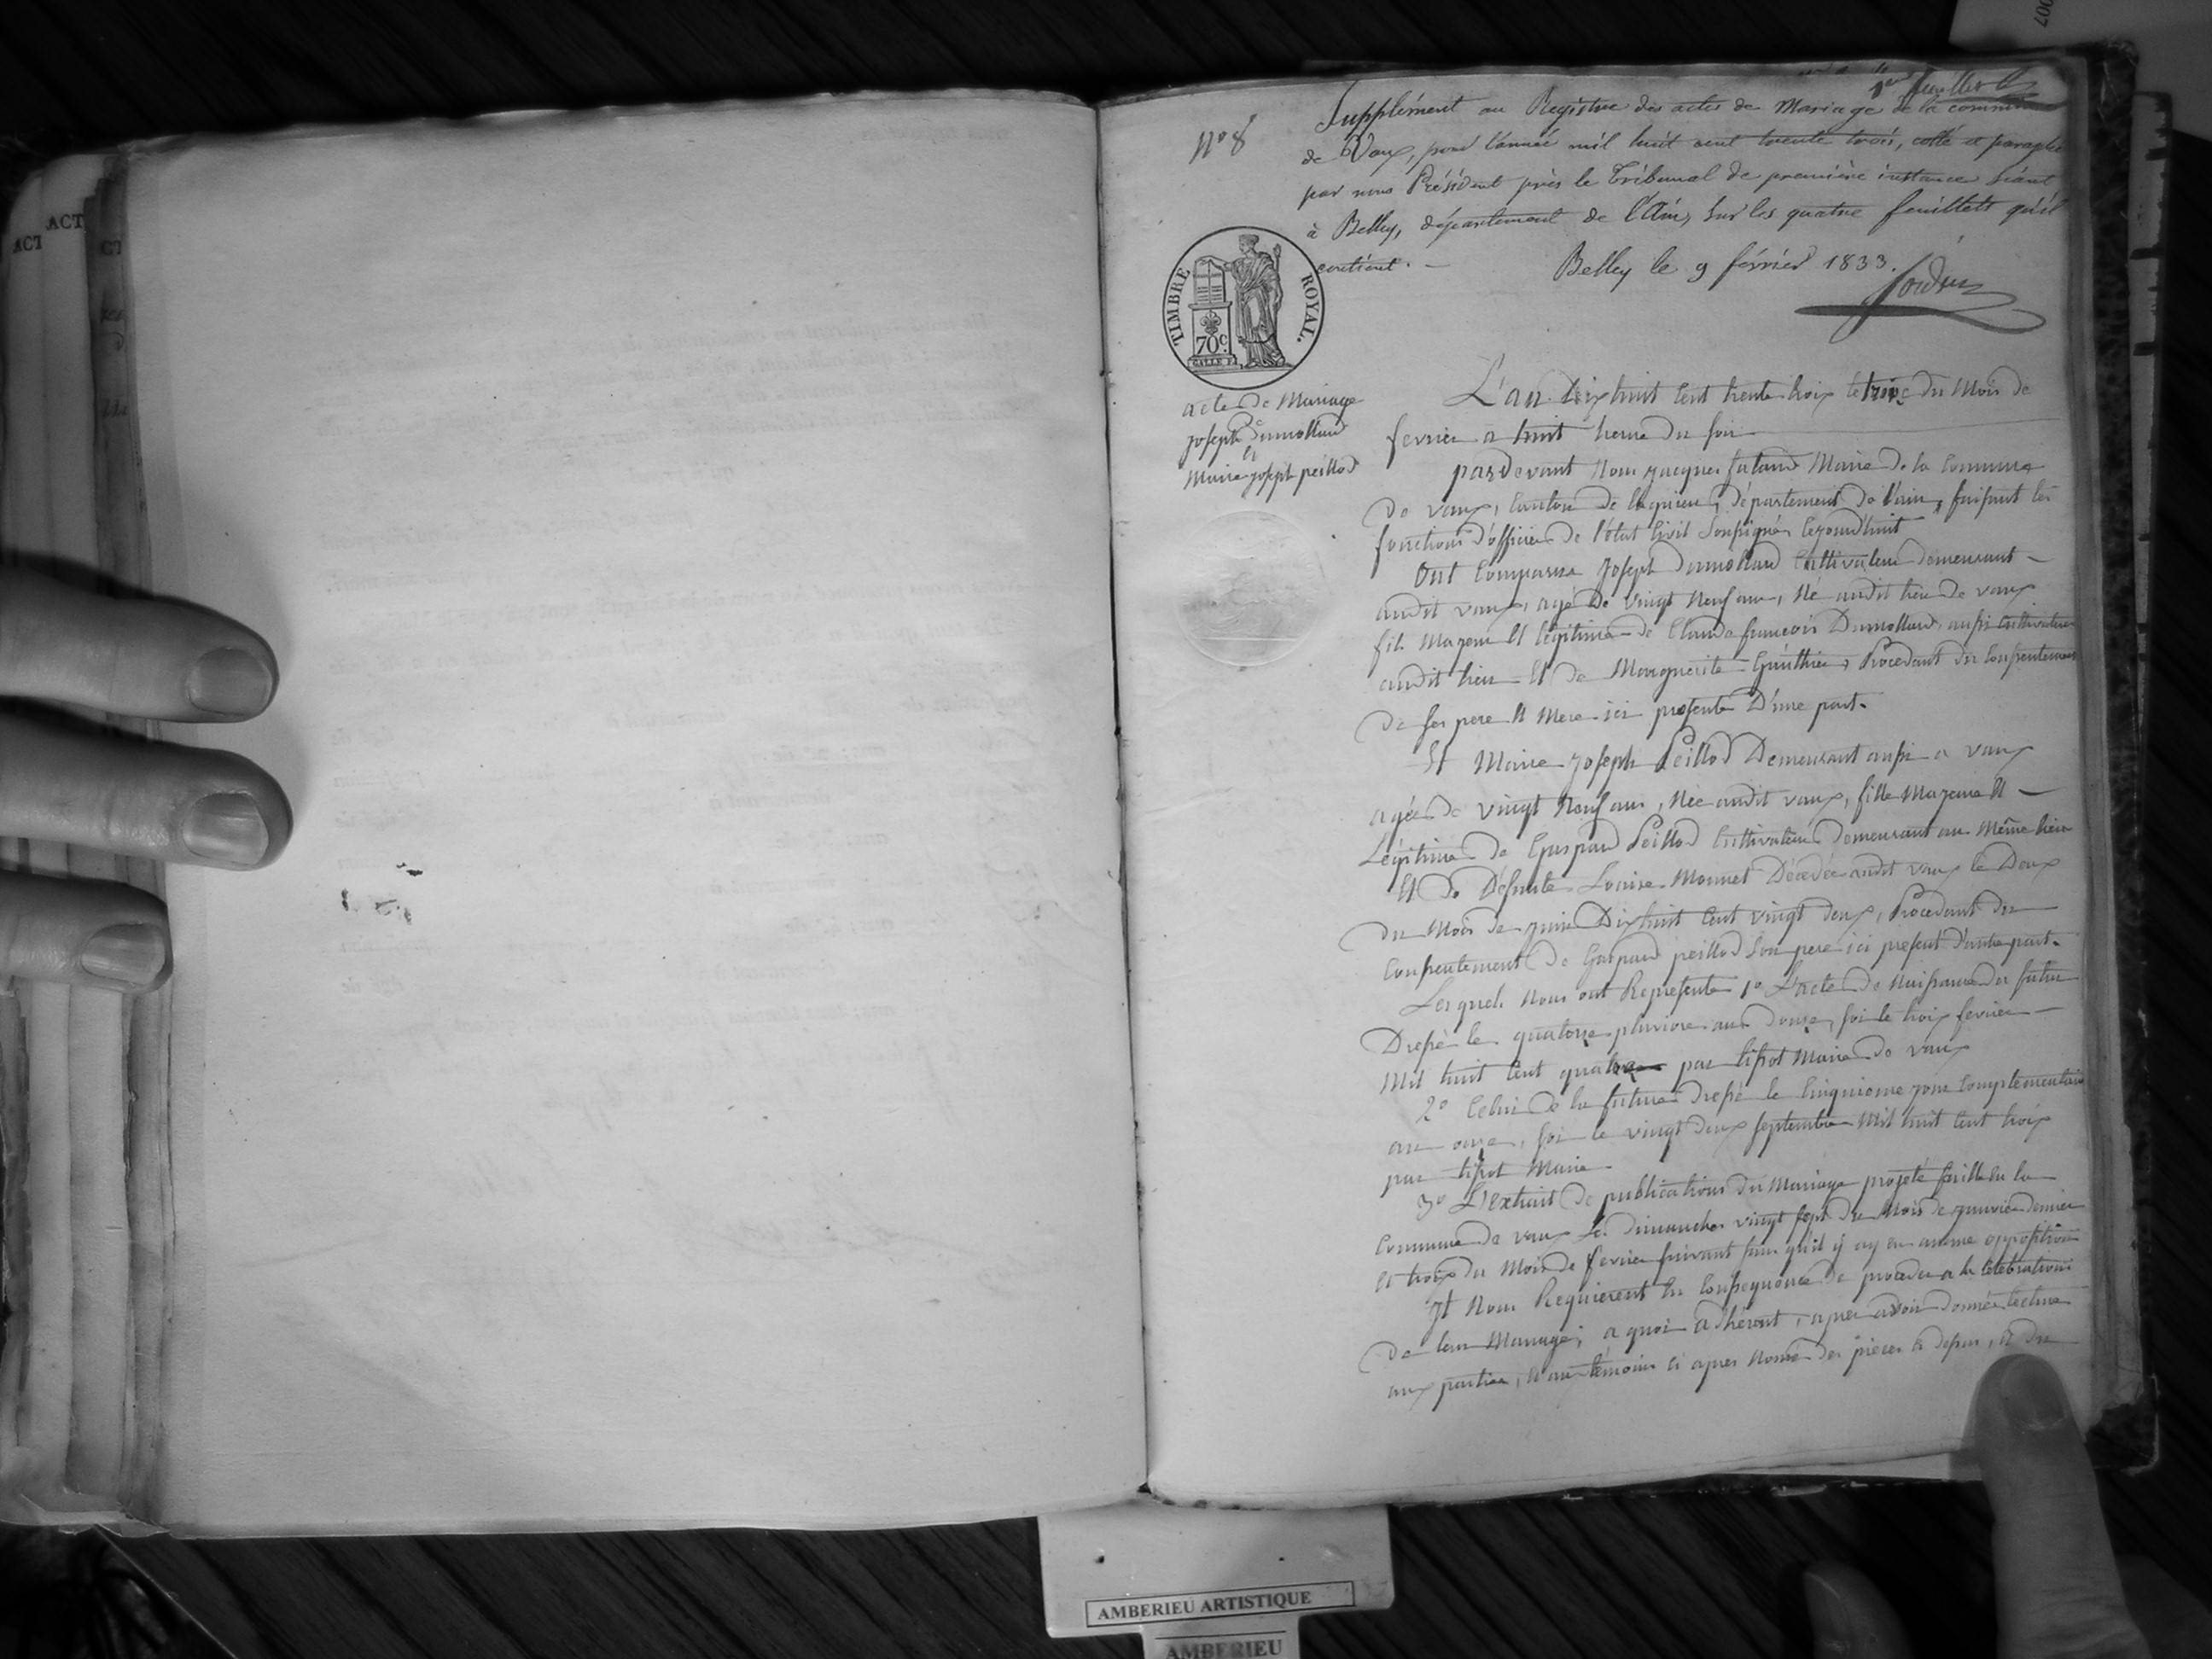 007
ACT
ACT
CT
1er feuillet
Supplément au Registre des actes de Mariage de la commune
de Vaux, pour l'année mil huit cent trente trois, coté et paraphé
par nous Président près le Tribunal de première instance séant
à Belley, département de l'Ain, sur les quatre feuillets qu'il
contient. —
Belley le 9 février 1833.
N° 8
TIMBRE ROYAL.
70c
acte de Mariage
Joseph Dumollard
et
Marie Joseph peillod
L'an Dix huit Cent trente trois le treize du Mois de
fevrier a huit heure du soir
pardevant Nous Jacques Maire de la Commune
de vaux, Canton de lagnieu, département de l'ain, faisant les
fonctions d'officier de l'état Civil Soussigné
Ont Comparus Joseph Dumollard Cultivateur demeurant
audit vaux, agé de vingt Neuf ans, Né audit lieu de vaux
fils Majeur et légitime de Claude françois Dumollard aussi Cultivateur
audit lieu et de Marguerite Gauthier, Procedant du Consentement
de ses pere et Mere ici présents D'une part.
Et Marie Joseph Peillod Demeurant aussi a vaux
agée de vingt Neuf ans, Née audit vaux, fille Majeure et
Légitime de Gaspard Peillod Cultivateur Demeurant au Même lieu
et de Défunte Louise Monnet Décédée audit vaux le Deux
du Mois de juin Dix huit Cent vingt deux, Procedant du
Consentement de Gaspard peillod Son pere ici présent d'autre part.
Lesquels Nous ont Représenté 1° L'acte de Naissance du futur
Dressé le quatorze pluviose an douze, soit le trois fevrier
Mil huit Cent quatre par tissot Maire de vaux
2° Celui de la future dressé le Cinquieme jour Complementaire
an onze, soit le vingt deux septembre Mil huit Cent trois
par tissot Maire
3° L'extrait de publications du Mariage projeté faitte en la
Commune de vaux les dimanches vingt sept du Mois de janvier dernier
et trois du Mois de fevrier suivant sans qu'il y ay eu aucune opposition
Et Nous Requierent en Consequence de proceder a la Celebration
de leur Mariage; a quoi adhérent, apres avoir donnée lecture
aux parties, et aux témoins ci apres Nomé des pieces ci dessus, et du
AMBERIEU ARTISTIQUE
AMBERIEU